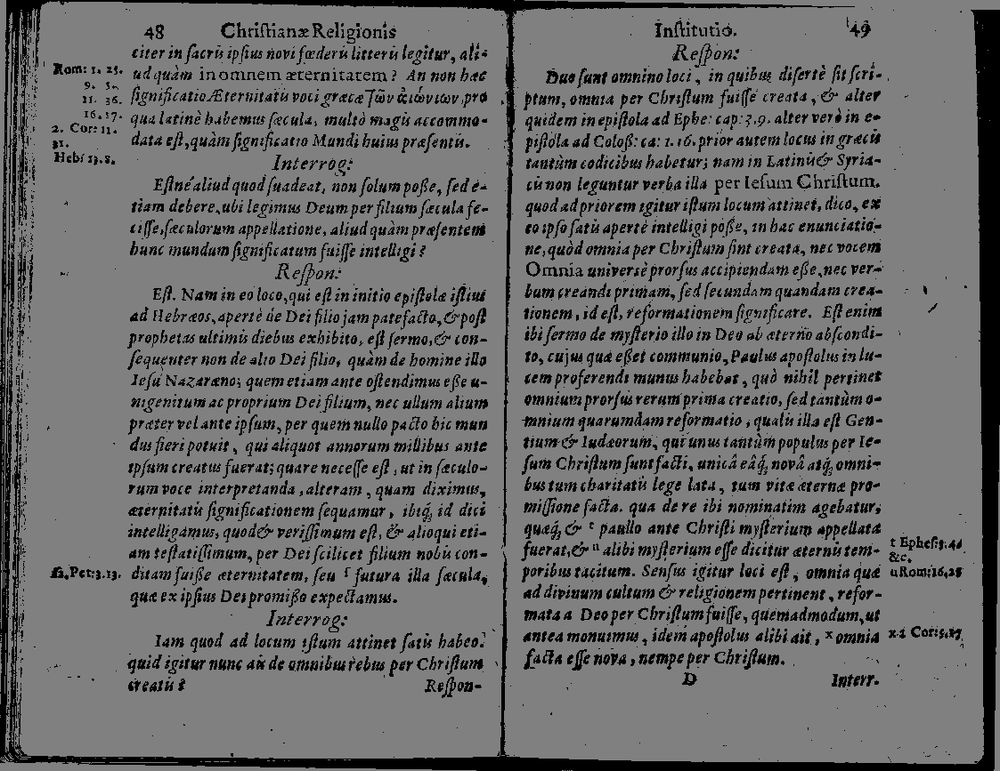 48 Christianæ Religionis
citer in sacris ipsius novi fœderis litteris legitur, ali-
ud quàm in omnem æternitatem? An non hæc
significatio Æternitatis voci græcæ τῶν αἰώνιων, pro
qua latinè habemus sæcula, multò magis accommo-
data est, quàm significatio Mundi huius præsentis.
Interrog:
Estne aliud quod suadeat, non solum posse, sed e-
tiam debere, ubi legimus Deum per filium sæcula fe-
cisse, sæculorum appellatione, aliud quàm præsentem
hunc mundum significatum fuisse intelligi?
Respon:
Est. Nam in eo loco, qui est in initio epistolæ istius
ad Hebræos, apertè de Dei filio jam patefacto, & post
prophetas ultimis diebus exhibito, est sermo, & con-
sequenter non de alio Dei filio, quàm de homine illo
Iesu Nazaræno; quem etiam ante ostendimus esse u-
nigenitum ac proprium Dei filium, nec ullum alium
præter vel ante ipsum, per quem nullo pacto hic mun
dus fieri potuit, qui aliquot annorum millibus ante
ipsum creatus fuerat; quare necesse est, ut in sæculo-
rum voce interpretanda, alteram, quam diximus,
æternitatis significationem sequamur, ibiq; id dici
intelligamus, quod & verissimum est, & alioqui eti-
am testatissimum, per Dei scilicet filium nobis con-
ditam fuisse æternitatem, seu ſ futura illa sæcula,
quæ ex ipsius Dei promisso expectamus.
Interrog:
Iam quod ad locum istum attinet satis habeo.
quid igitur nunc ais de omnibus rebus per Christum
creatis?
Respon-
Rom: 1. 25.
9. 5.
11. 36.
16. 27.
2. Cor: 11.
31.
Heb: 13. 8.
2. Pet: 3. 13.
Institutio. 49
Respon:
Duo sunt omnino loci, in quibus disertè sit scri-
ptum, omnia per Christum fuisse creata, & alter
quidem in epistola ad Ephe: cap: 3. 9. alter verò in e-
pistola ad Coloss: ca: 1. 16. prior autem locus in græcis
tantùm codicibus habetur; nam in Latinis & Syria-
cis non leguntur verba illa per Iesum Christum.
quod ad priorem igitur istum locum attinet, dico, ex
eo ipso satis apertè intelligi posse, in hac enunciatio-
ne, quòd omnia per Christum sint creata, nec vocem
Omnia universè prorsus accipiendam esse, nec ver-
bum creandi primam, sed secundam quandam crea-
tionem, id est, reformationem significare. Est enim
ibi sermo de mysterio illo in Deo ab æterno abscondi-
to, cujus quæ esset communio, Paulus apostolus in lu-
cem proferendi munus habebat, quò nihil pertinet
omnium prorsus rerum prima creatio, sed tantùm o-
mnium quarumdam reformatio, qualis illa est Gen-
tium & Iudæorum, qui unus tantùm populus per Ie-
sum Christum sunt facti, unicâ eâq́; novâ atq́; omni-
bus tum charitatis lege lata, tum vitæ æternæ pro-
missione facta. qua de re ibi nominatim agebatur,
quæq́; & t paullo ante Christi mysterium appellata
fuerat, & u alibi mysterium esse dicitur æternis tem-
poribus tacitum. Sensus igitur loci est, omnia quæ
ad divinum cultum & religionem pertinent, refor-
mata a Deo per Christum fuisse, quemadmodum, ut
antea monuimus, idem apostolus alibi ait, x omnia
facta esse nova, nempe per Christum.
D Interr.
t Ephes: 3. 4.
&c.
u Rom: 16, 25
x 2 Cor: 5. 17